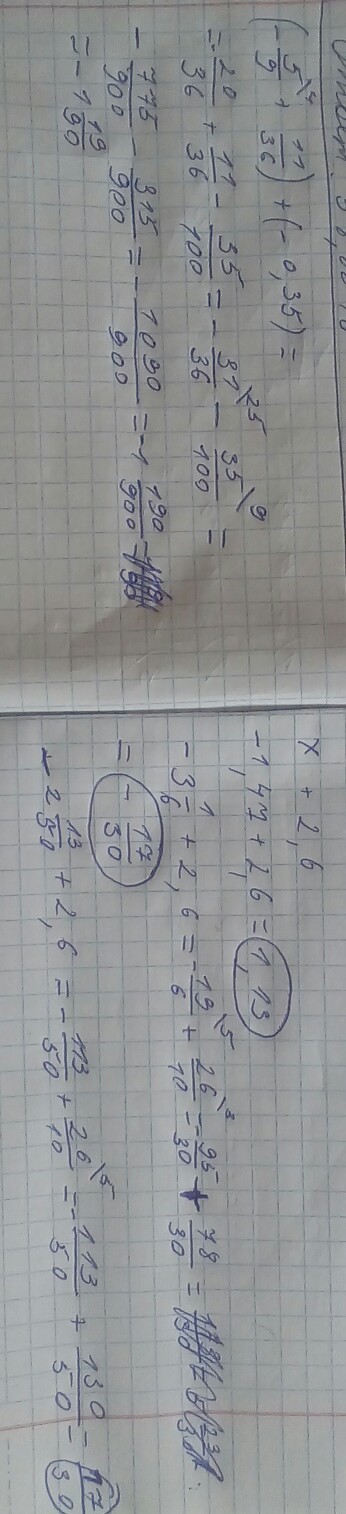 (-5/9\4 + 11/36) + (-0,35) =
=-20/36 + 11/36 - 35/100 = -31/36\25 - 35/100\9 =
-775/900 - 315/900 = -1090/900 = -1 190/900 =
= -1 19/90
x + 2,6
-1,47 + 2,6 = 1,13
-3 1/6 + 2,6 = -19/6\5 + 26/10\3 = -95/30 + 78/30 =
= -17/30
-2 13/50 + 2,6 = -113/50 + 26/10\5 = -113/50 + 130/50 = 17/50